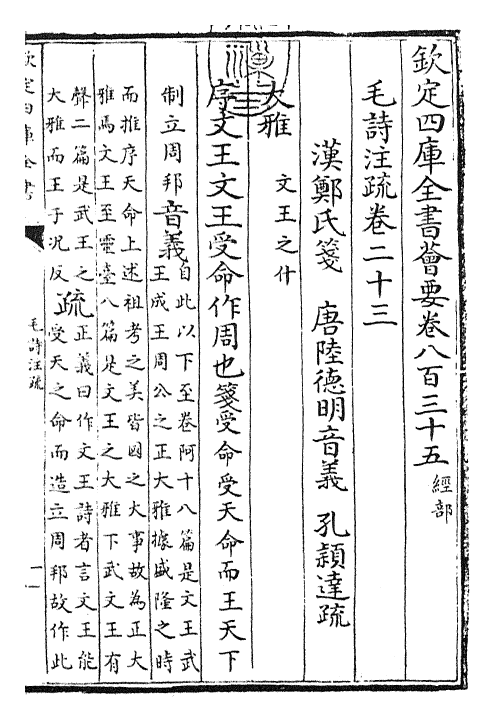 欽定四庫全書薈要卷八百三十五 經部
毛詩注疏卷二十三
漢鄭氏箋 唐陸德明音義 孔穎達疏
大雅 文王之什
序文王文王受命作周也箋受命受天命而王天下
制立周邦音義
自此以下至卷阿十八篇是文王武
王成王周公之正大雅據盛隆之時
而推序天命上述祖考之美皆國之大事故為正大
雅焉文王至靈臺八篇是文王之大雅下武文王有
聲二篇是武王之
大雅而王于況反
疏
正義曰作文王詩者言文王能
受天之命而造立周邦故作此
欽定四庫全書
毛詩注疏
一